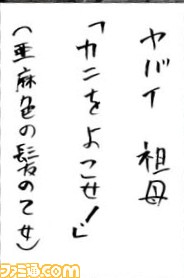 ヤバイ 祖母
「カニをよこせ!」
(亜麻色の髪の乙女)
ファミ通.com